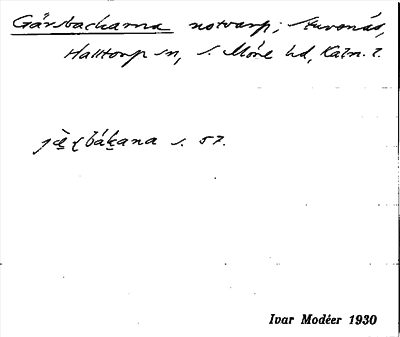 Gärsbackarna notvarp; Stuvenäs,
Halltorp sn, S. Möre hd, Kalm. l.
bákana s. 57.
Ivar Modéer 1930